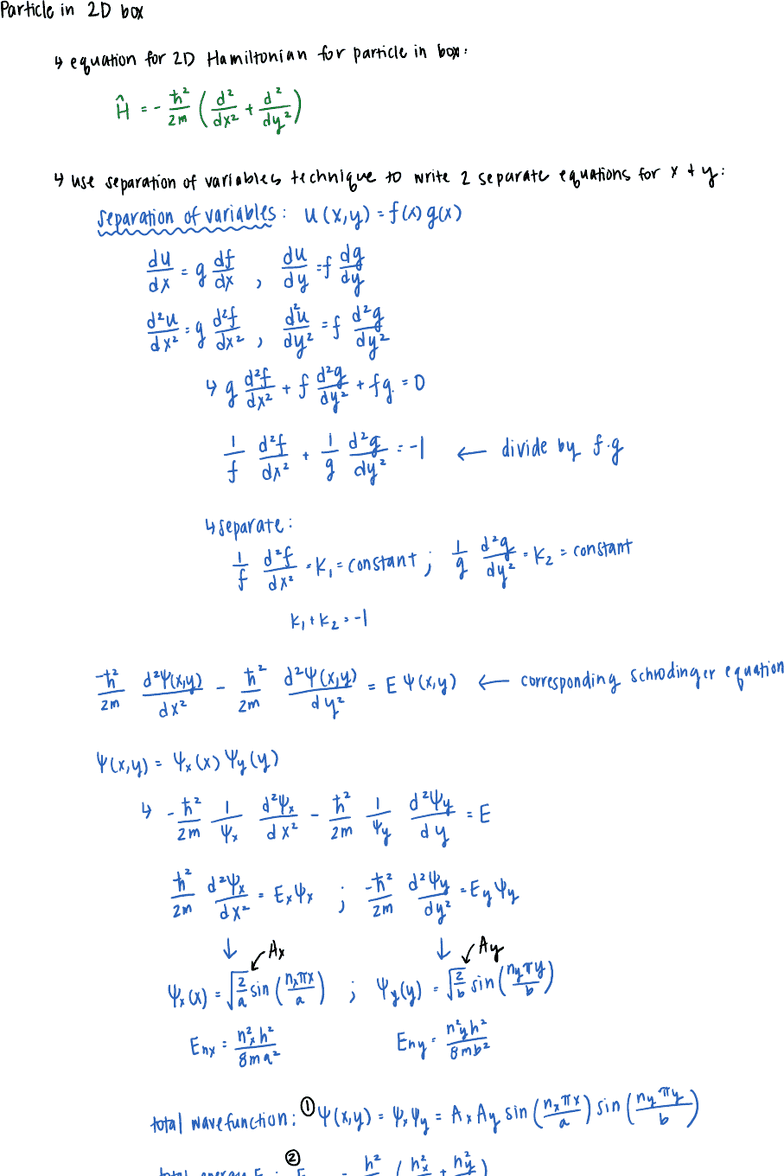 Particle in 2D box
↳ equation for 2D Hamiltonian for particle in box:
Ĥ = - ħ²/2m (d²/dx² + d²/dy²)
↳ use separation of variables technique to write 2 separate equations for x + y:
separation of variables: u(x,y) = f(x) g(x)
du/dx = g df/dx , du/dy = f dg/dy
d²u/dx² = g d²f/dx² , d²u/dy² = f d²g/dy²
↳ g d²f/dx² + f d²g/dy² + fg = 0
1/f d²f/dx² + 1/g d²g/dy² = -1 ← divide by f·g
↳ separate:
1/f d²f/dx² = K₁ = constant ; 1/g d²g/dy² = K₂ = constant
K₁ + K₂ = -1
-ħ²/2m d²Ψ(x,y)/dx² - ħ²/2m d²Ψ(x,y)/dy² = E Ψ(x,y) ← corresponding schrodinger equation
Ψ(x,y) = Ψx(x) Ψy(y)
↳ - ħ²/2m 1/Ψx d²Ψx/dx² - ħ²/2m 1/Ψy d²Ψy/dy = E
ħ²/2m d²Ψx/dx² = ExΨx ; -ħ²/2m d²Ψy/dy² = EyΨy
↓ ↙Ax ↓ ↙Ay
Ψx(x) = √(2/a) sin (nxπx/a) ; Ψy(y) = √(2/b) sin (nyπy/b)
Enx = nx²h²/8ma² Eny = ny²h²/8mb²
total wavefunction: ① Ψ(x,y) = ΨxΨy = Ax Ay sin (nxπx/a) sin (nyπy/b)
total energy E : ②